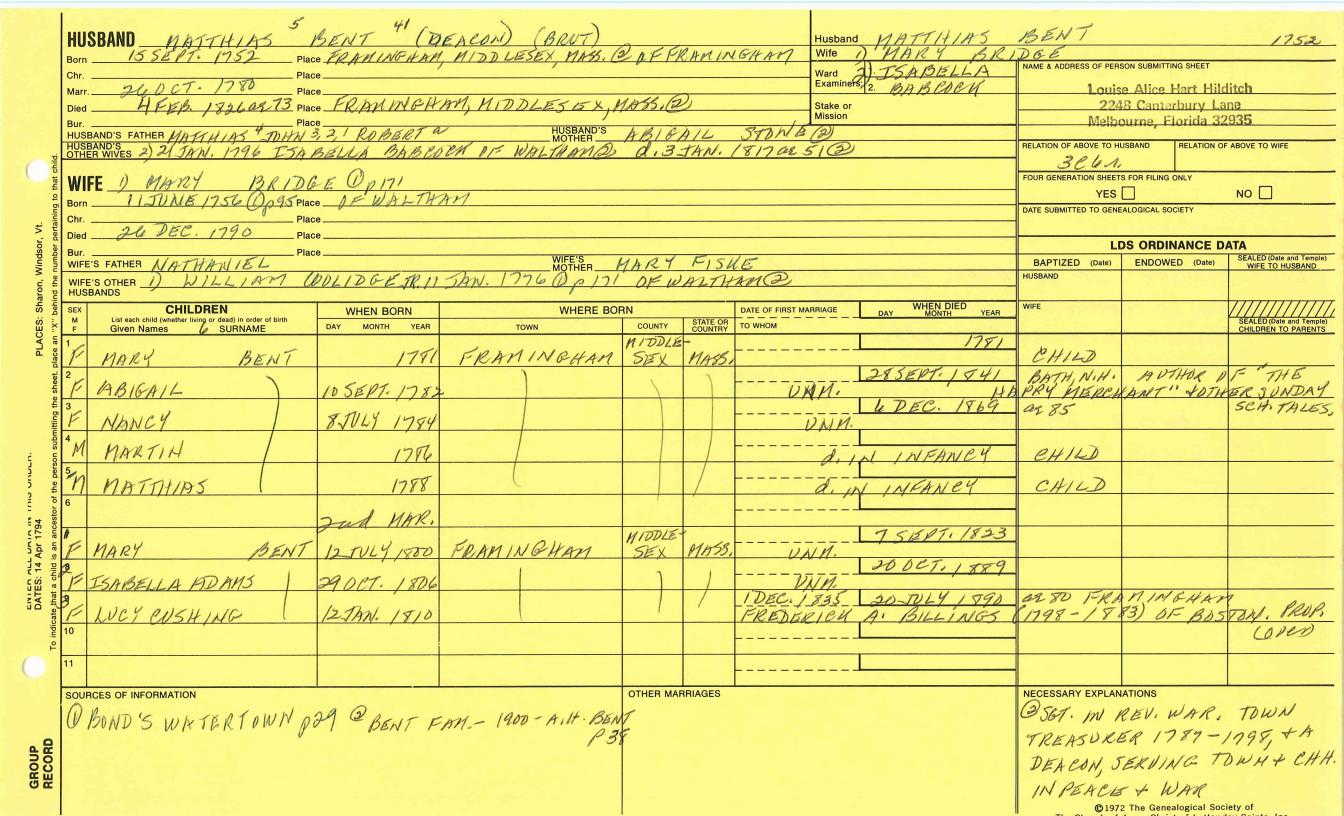 HUSBAND MATTHIAS 5 BENT 41 (DEACON) (BRUT)
Born 15 SEPT. 1752 Place FRAMINGHAM, MIDDLESEX, MASS. ② OF FRAMINGHAM
Chr. Place
Marr. 26 OCT. 1780 Place
Died 4 FEB. 1826 ae 73 Place FRAMINGHAM, MIDDLESEX, MASS. ②
Bur. Place
HUSBAND'S FATHER MATTHIAS 4 JOHN 3, 2, 1 ROBERT a HUSBAND'S MOTHER ABIGAIL STONE ②
HUSBAND'S OTHER WIVES 2) 21 JAN. 1796 ISABELLA BABCOCK OF WALTHAM ② d. 3 JAN. 1817 ae 51 ②
Husband MATTHIAS BENT 1752
Wife 1) MARY BRIDGE
Ward Examiners: 2) ISABELLA
2. BABCOCK
Stake or Mission
NAME & ADDRESS OF PERSON SUBMITTING SHEET
Louise Alice Hart Hilditch
2248 Canterbury Lane
Melbourne, Florida 32935
RELATION OF ABOVE TO HUSBAND RELATION OF ABOVE TO WIFE
3C6r.
FOUR GENERATION SHEETS FOR FILING ONLY
YES NO
DATE SUBMITTED TO GENEALOGICAL SOCIETY
WIFE 1) MARY BRIDGE ① p171
Born 11 JUNE 1756 ① p95 Place OF WALTHAM
Chr. Place
Died 26 DEC. 1790 Place
Bur. Place
WIFE'S FATHER NATHANIEL WIFE'S MOTHER MARY FISKE
WIFE'S OTHER HUSBANDS 1) WILLIAM COOLIDGE JR. 11 JAN. 1776 ① p171 OF WALTHAM ②
LDS ORDINANCE DATA
BAPTIZED (Date) ENDOWED (Date) SEALED (Date and Temple) WIFE TO HUSBAND
HUSBAND
WIFE
SEALED (Date and Temple) CHILDREN TO PARENTS
SEX M F CHILDREN WHEN BORN WHERE BORN DATE OF FIRST MARRIAGE WHEN DIED
List each child (whether living or dead) in order of birth
Given Names SURNAME DAY MONTH YEAR TOWN COUNTY STATE OR COUNTRY TO WHOM DAY MONTH YEAR
1 F MARY BENT 1781 FRAMINGHAM MIDDLE-SEX MASS. 1781 CHILD
2 F ABIGAIL 10 SEPT. 1782 UNM. 28 SEPT. 1841 BATH, N.H. AUTHOR OF "THE
HAPPY MERCHANT" & OTHER SUNDAY
SCH. TALES,
3 F NANCY 8 JULY 1784 UNM. 6 DEC. 1869 ae 85
4 M MARTIN 1786 d. IN INFANCY CHILD
5 M MATTHIAS 1788 d. IN INFANCY CHILD
6
2nd MAR.
1 F MARY BENT 12 JULY 1800 FRAMINGHAM MIDDLE-SEX MASS. UNM. 7 SEPT. 1823
2 F ISABELLA ADAMS 29 OCT. 1806 UNM. 20 OCT. 1889
3 F LUCY CUSHING 12 JAN. 1810 1 DEC. 1835 20 JULY 1890 ae 80 FRAMINGHAM
FREDERICK A. BILLINGS (1798-1883) OF BOSTON. PROP.
(OVER)
10
11
SOURCES OF INFORMATION
① BOND'S WATERTOWN p29 ② BENT FAM. - 1900 - A.H. BENT
p 38
OTHER MARRIAGES
NECESSARY EXPLANATIONS
② SGT. IN REV. WAR. TOWN
TREASURER 1787-1798, & A
DEACON, SERVING TOWN & CHH.
IN PEACE & WAR
©1972 The Genealogical Society of
PLACES: Sharon, Windsor, Vt.
DATES: 14 Apr 1794
To indicate that a child is an ancestor of the person submitting the sheet, place an "X" behind the number pertaining to that child.
GROUP RECORD